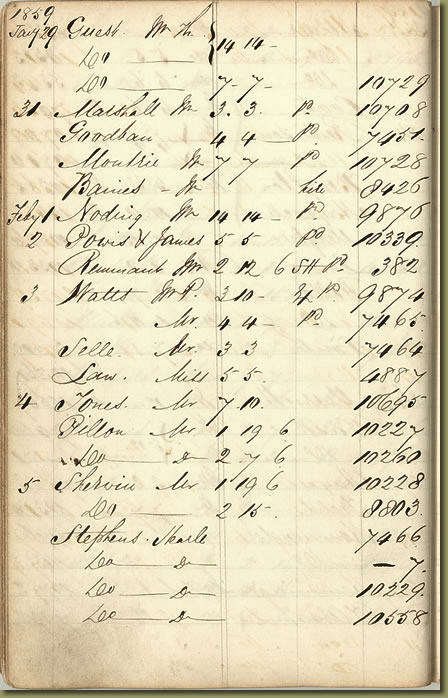 1859
Jany 29 Guest Mr Th. 14 14 -
Do
Do 7 - 7 - 10729
31 Marshall Mr 3. 3. Pd 10708
Goodban 4 4 - Pd 7451
Mr 7 7 Pd 10728
Baines - Mr hire 8426
Feby 1 Noding Mr 14 14 - Pd 9876
2 Powis & James 5 5 Pd 10339
Remnant Mr 2 12 6 SH Pd 382
3 Watts Mr P. 3 10 - Pd 9874
Mr. 4 4 - Pd 7465
Selle. Mr. 3 3 7464
Law. Miss 5 5. 4887
4 Jones. Mr 7 10. 10695
Pillon Mr 1 19 6 10227
Do Do 2 7 6 10260
5 Shervin Mr 1 19 6 10228
Do 2 15. 8803
Stephens. Searle 7466
Do Do - 7.
Do Do 10229
Do Do 10558